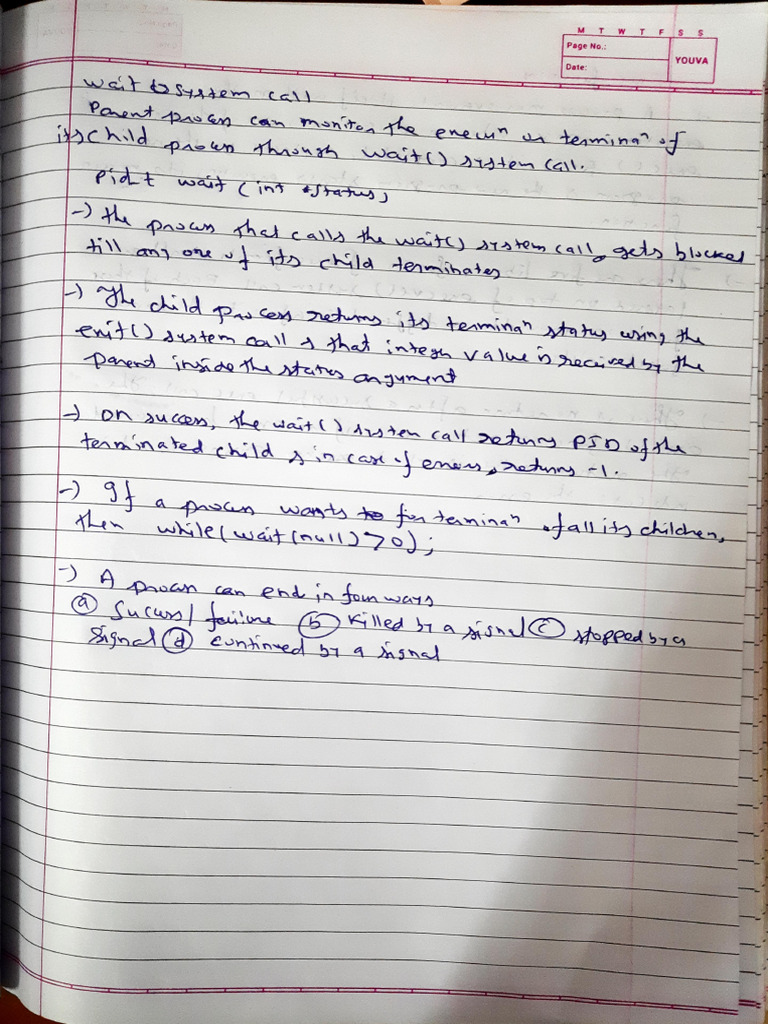 M T W T F S S
Page No.:
Date:
YOUVA
wait system call
Parent process can monitor the execuⁿ or terminaⁿ of
its child process through wait() system call.
pid_t wait (int *status)
-) the process that calls the wait() system call, gets blocked
till any one of its child terminates
-) The child process returns its terminaⁿ status using the
exit() system call & that integer value is received by the
parent inside the status argument
-) on success, the wait() system call returns PID of the
terminated child & in case of errors, returns -1.
-) If a process wants for terminaⁿ of all its children,
then while(wait(null)>0);
-) A process can end in four ways
(a) Success/failure (b) killed by a signal (c) stopped by a
signal (d) continued by a signal